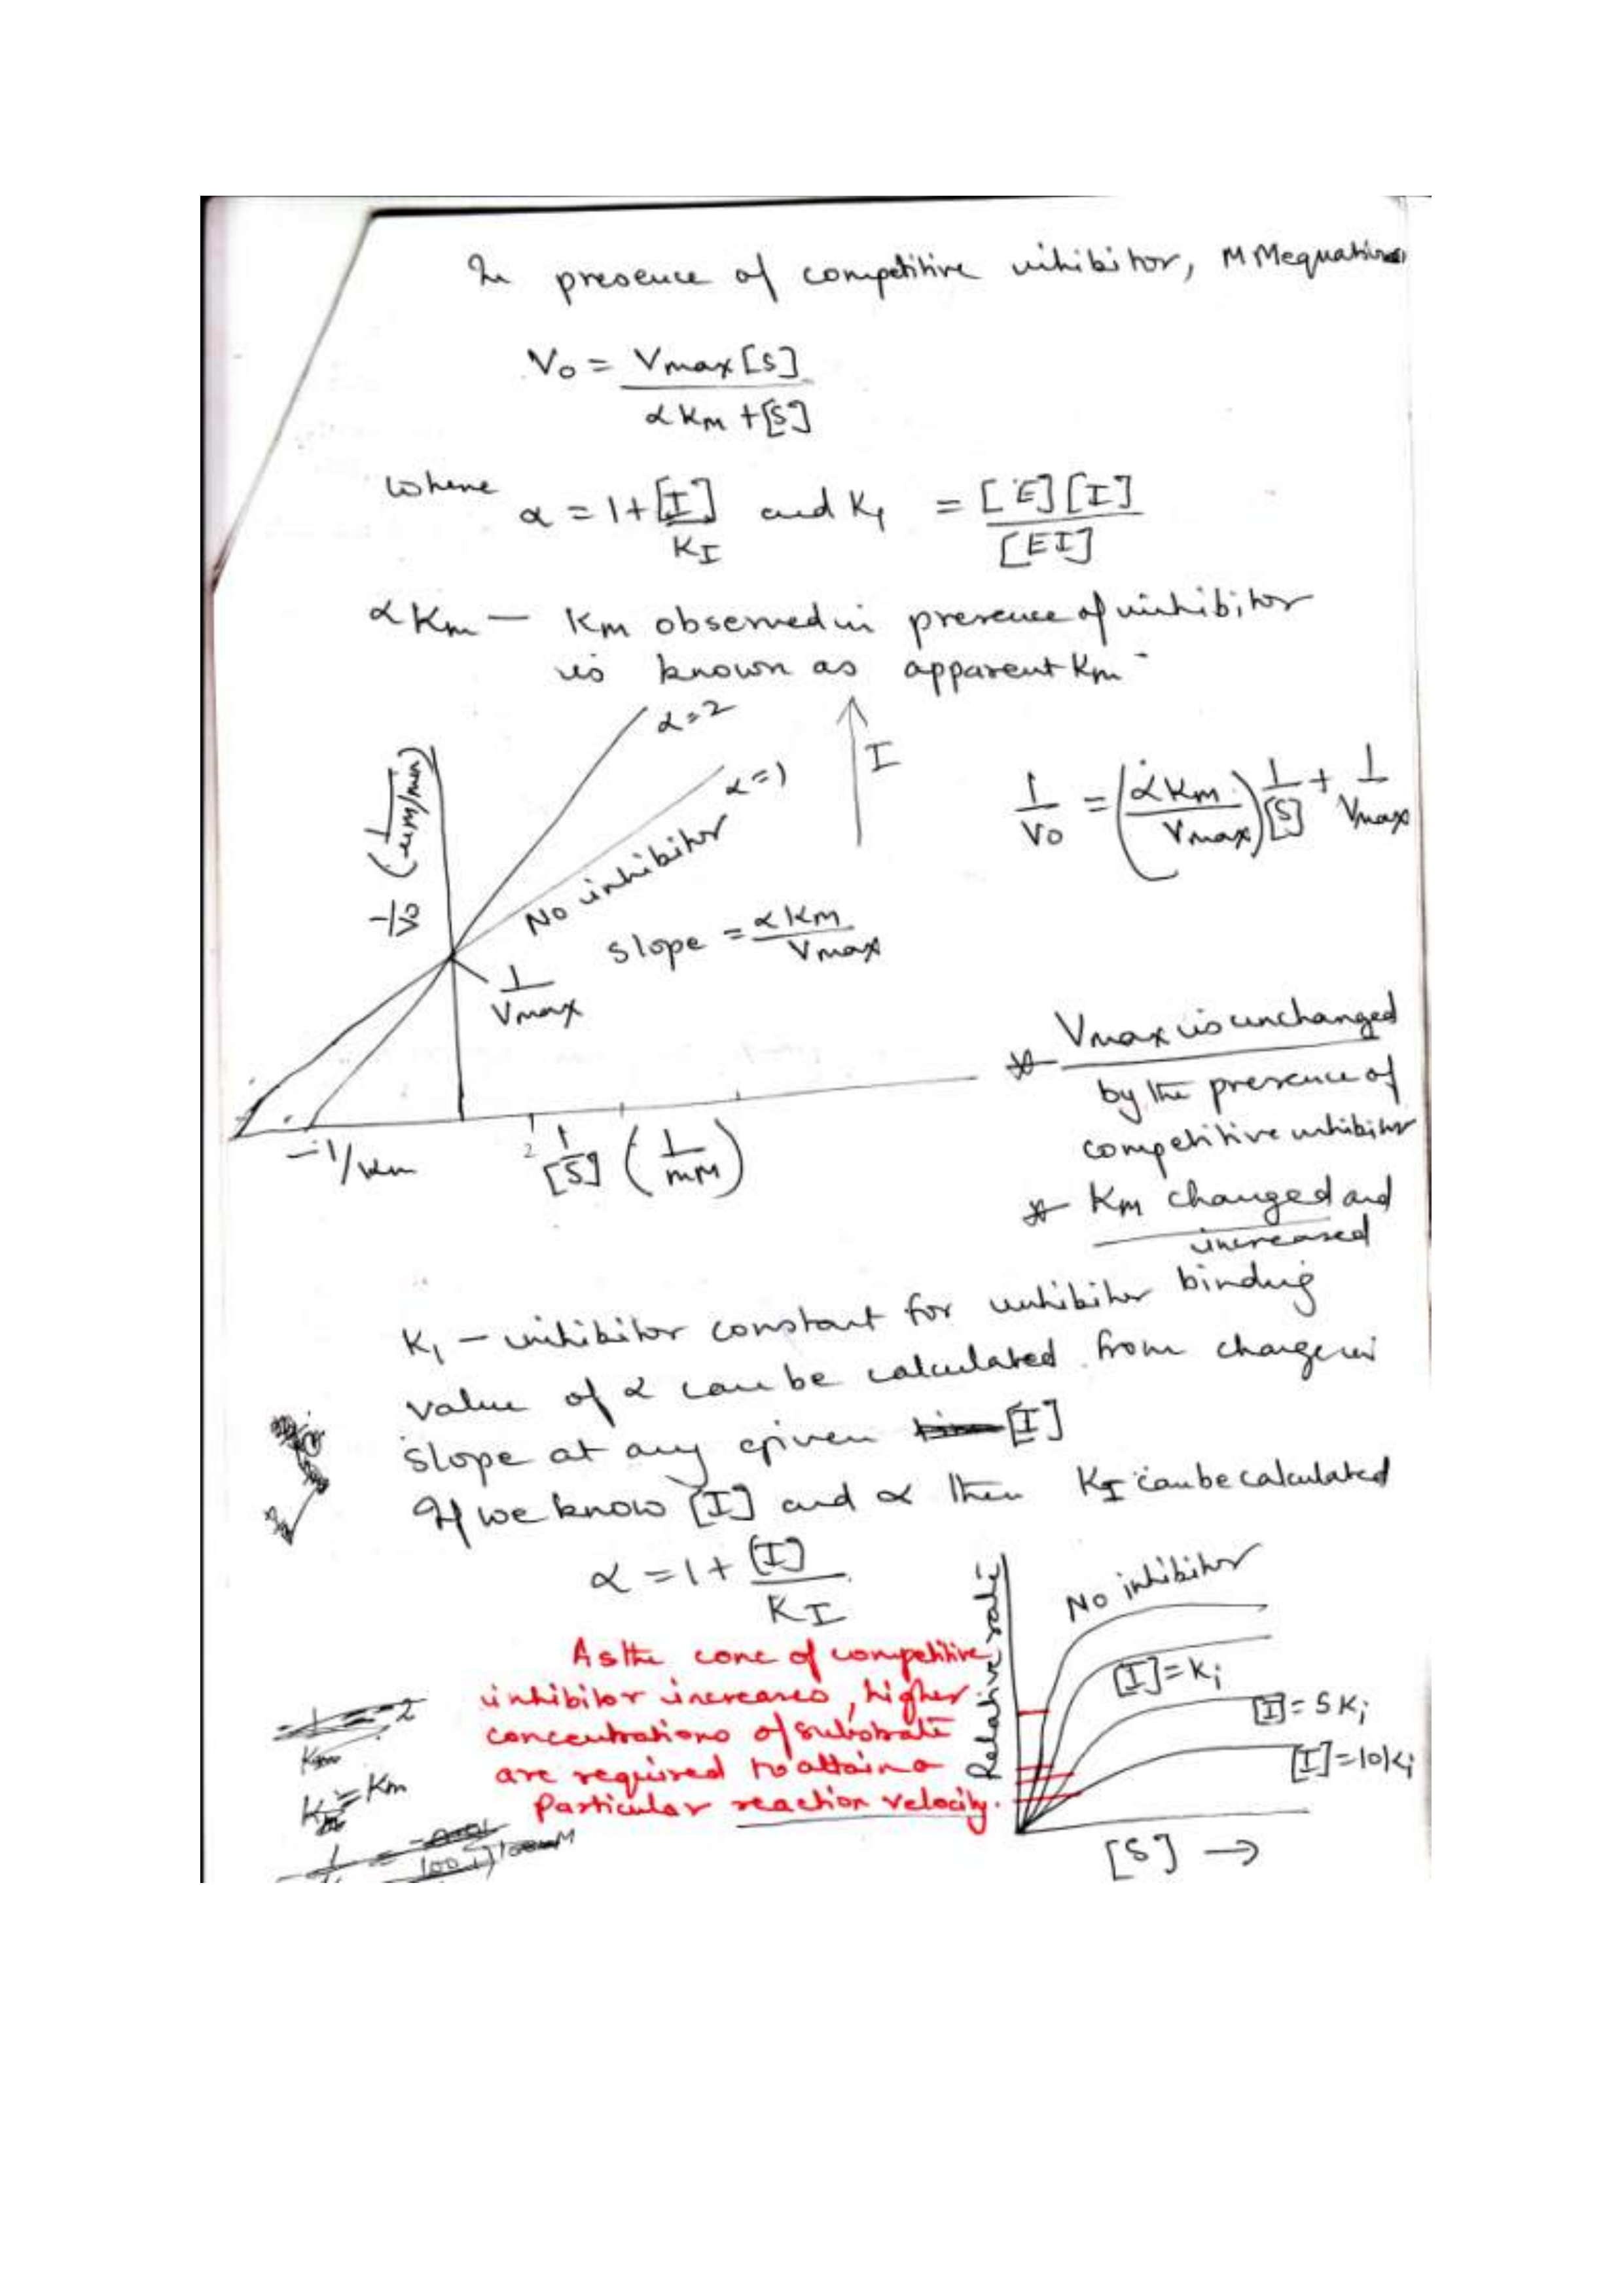 In presence of competitive inhibitor, MM equation
V₀ = Vmax[S]
αKm + [S]
where α = 1 + [I] / KI and KI = [E][I] / [EI]
αKm – Km observed in presence of inhibitor
is known as apparent Km
α = 2
I
α = 1
No inhibitor
1/V₀ = (αKm / Vmax) 1/[S] + 1/Vmax
1/V₀ (1 / μM/min)
slope = αKm / Vmax
1/Vmax
* Vmax is unchanged
by the presence of
competitive inhibitor
* Km changed and
increased
-1/Km
2
1/[S] (1/mM)
KI – inhibitor constant for inhibitor binding
value of α can be calculated from change in
slope at any given [I]
If we know [I] and α then KI can be calculated
α = 1 + [I] / KI
As the conc of competitive
inhibitor increases, higher
concentrations of substrate
are required to attain a
particular reaction velocity.
Relative rate
No inhibitor
[I] = Ki
[I] = 5Ki
[I] = 10Ki
[S] →
= Km